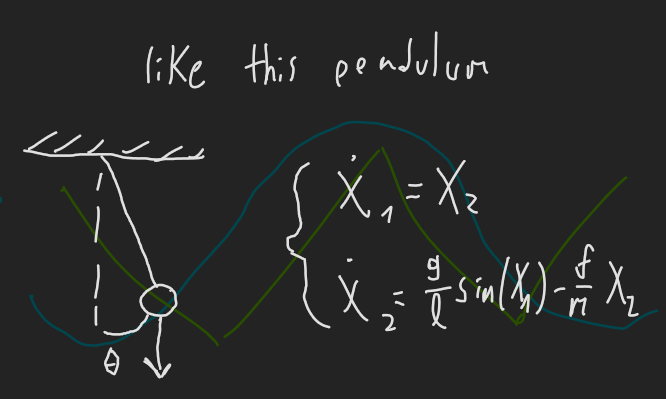 like this pendulum
ẋ₁ = x₂
ẋ₂ = g/l sin(x₁) - f/m x₂
θ